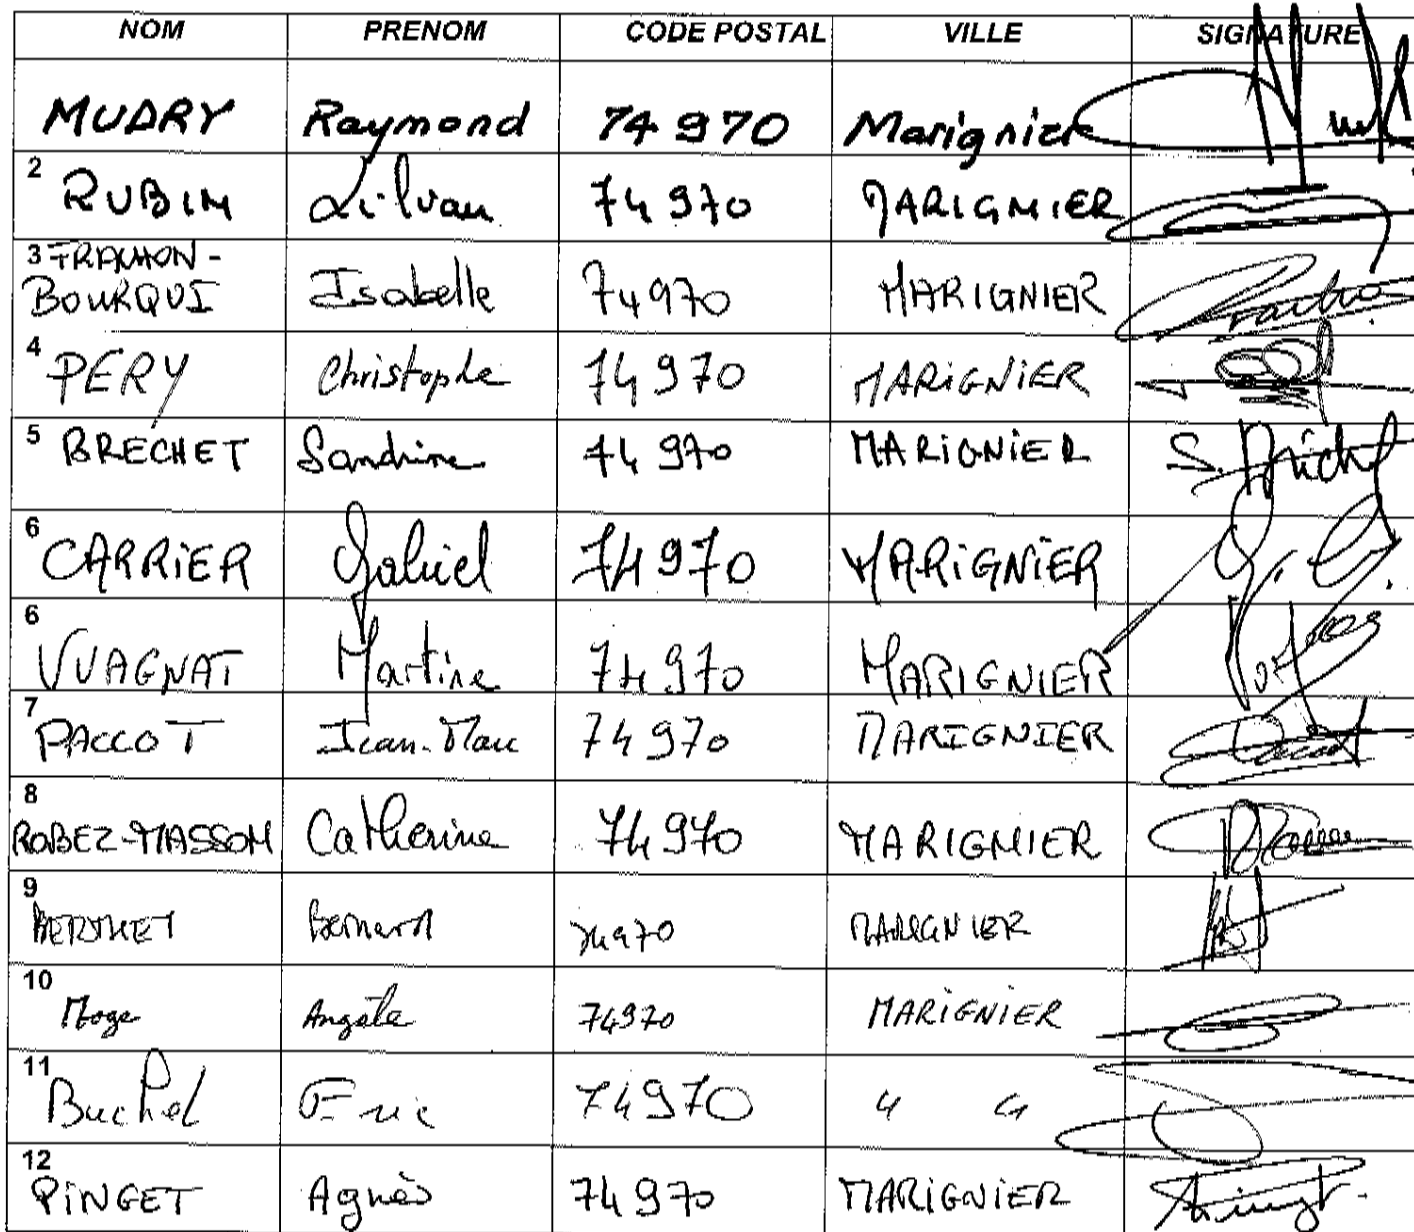 NOM PRENOM CODE POSTAL VILLE SIGNATURE
MUDRY Raymond 74 970 Marignier
2 RUBIN 74 970 MARIGNIER
3 FRACHON-
BOURQUI Isabelle 74970 MARIGNIER
4 PERY Christophe 74 970 MARiGNiER
5 BRECHET Sandrine 74 970 MARiGNiER S.
6 CARRiER Gabriel 74 970 MARiGNiER
6 VUAGNAT Martine 74 970 MARIGNIER
7 PACCOT Jean-Marc 74970 MARIGNIER
8 ROBEZ-MASSON Catherine 74 970 MARIGNIER
9 BERTHET Bernard 74970 MARIGNIER
10 Angèle 74970 MARiGNiER
11 Buchel Eric 74970
12 PiNGET Agnès 74970 MARiGNiER